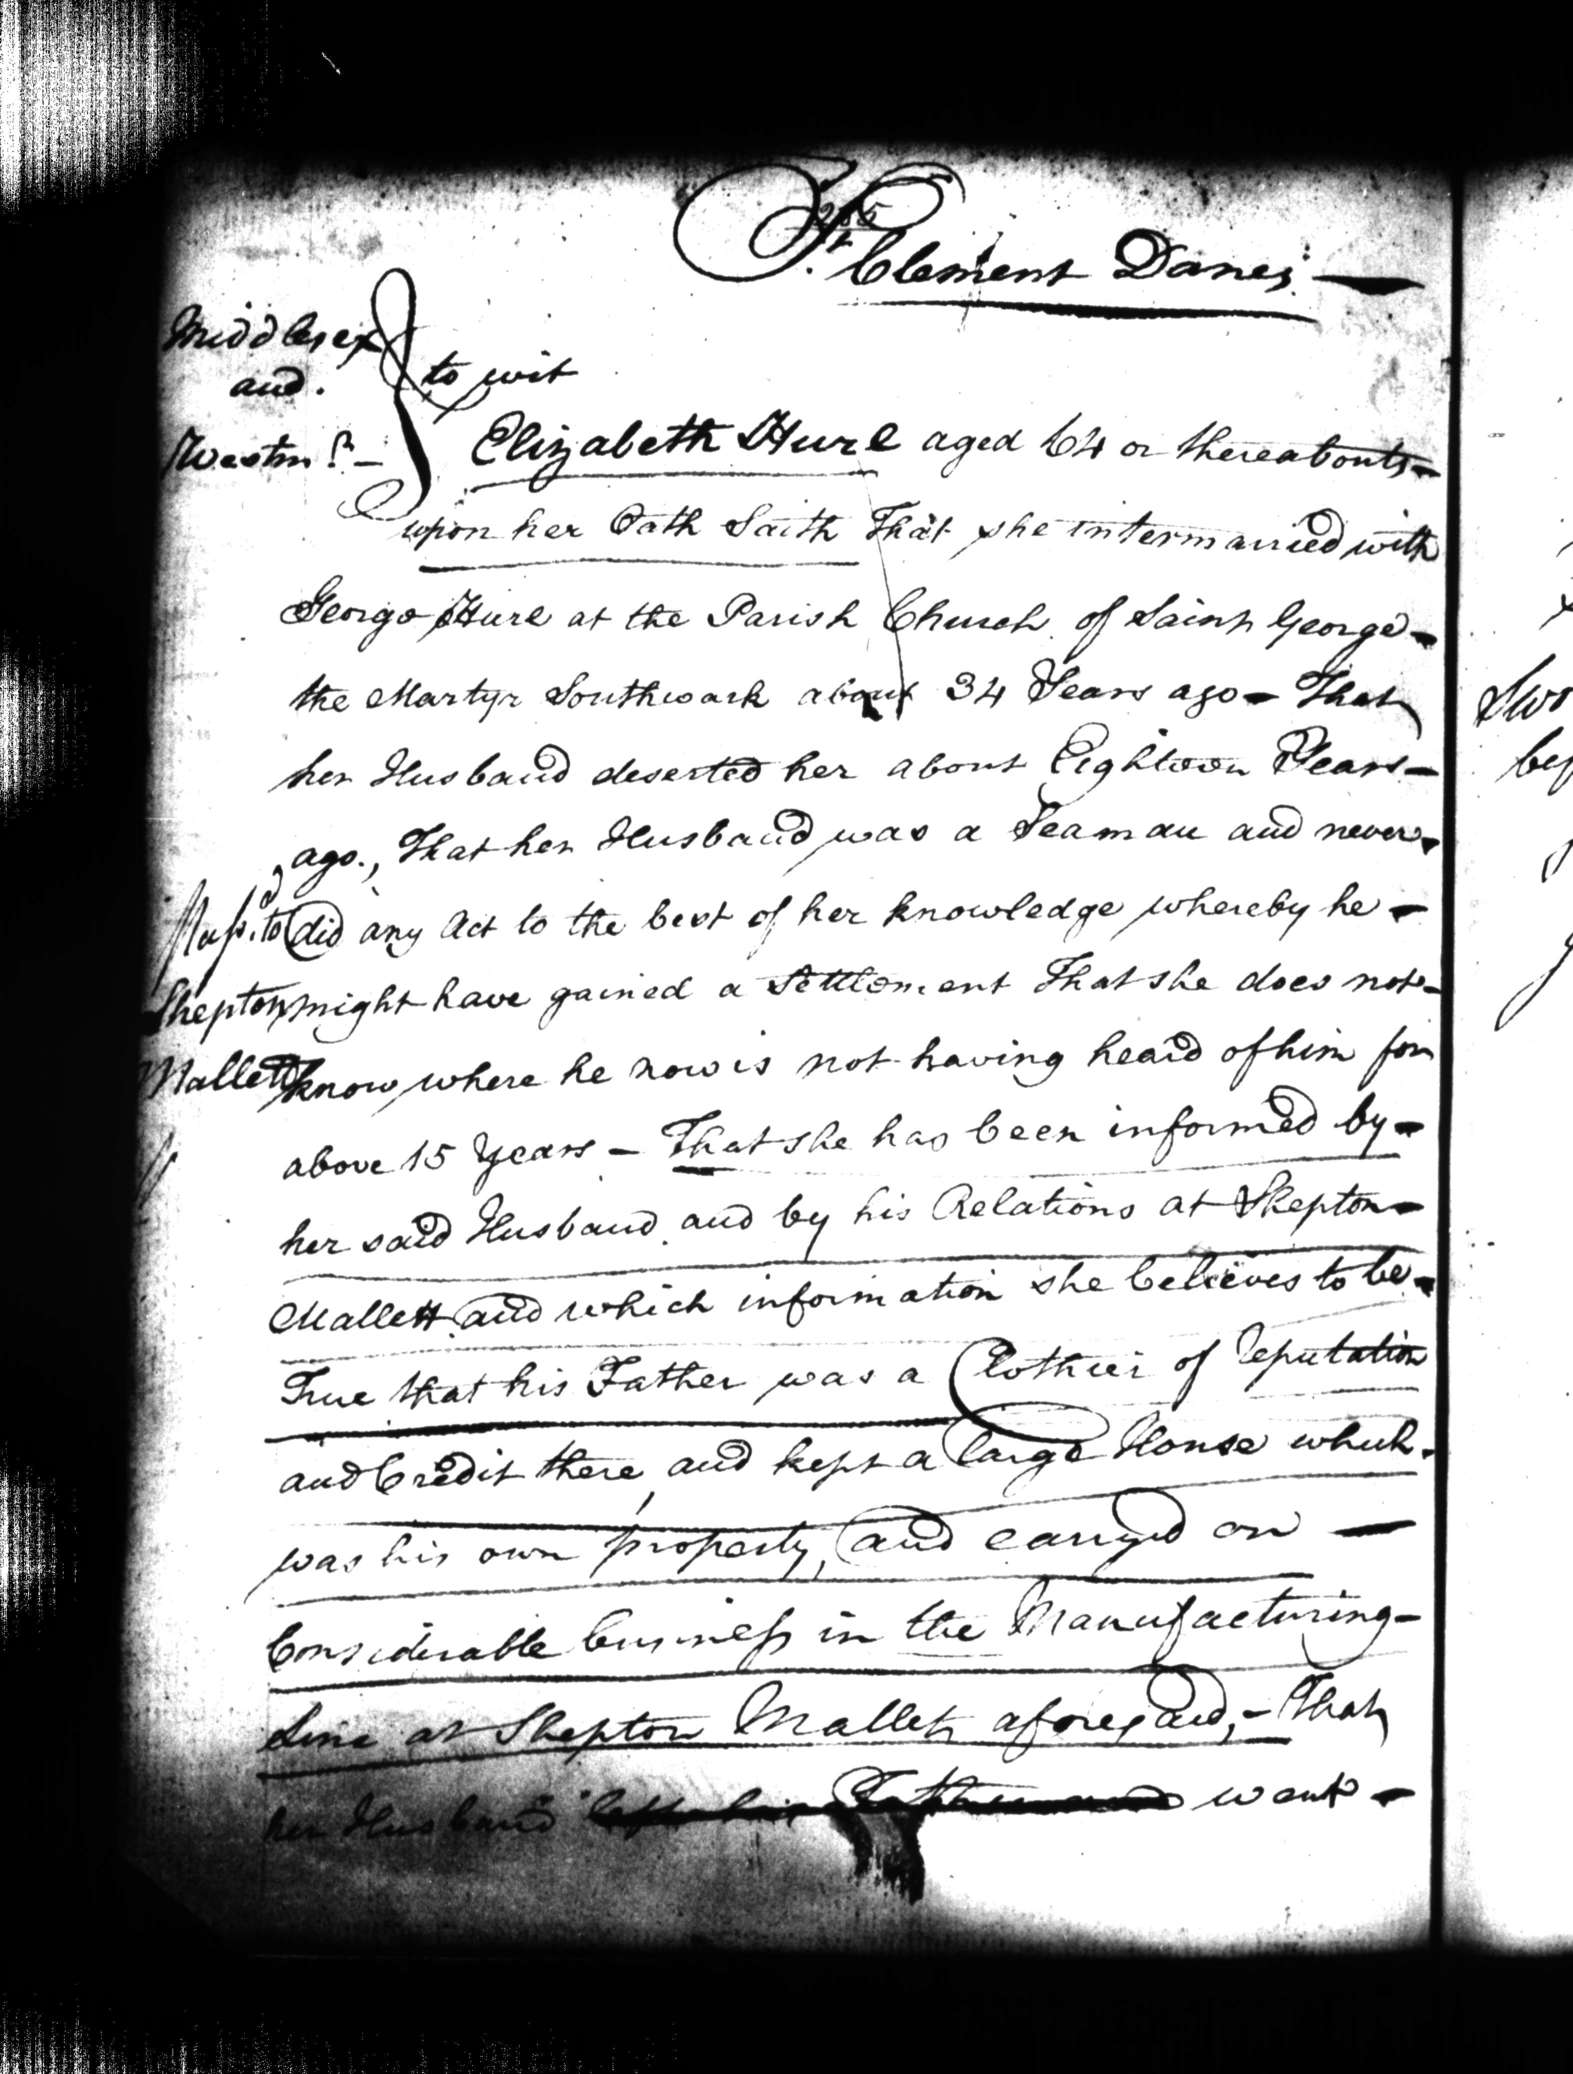 265
St. Clement Danes —
Middlesex
and.
Westmr. —
to wit
Elizabeth Hurl aged 64 or thereabouts —
upon her Oath Saith That she intermarried with
George Hurl at the Parish Church of Saint George —
the Martyr Southwark about 34 Years ago — That
her Husband deserted her about Eighteen Years —
ago., That her Husband was a Seaman and never —
did any Act to the best of her knowledge whereby he —
might have gained a Settlement That she does not —
know where he now is not having heard of him for
above 15 Years — That she has been informed by —
her said Husband and by his Relations at Shepton —
Mallett and which information she believes to be —
True that his Father was a Clothier of Reputation
and Credit there, and kept a large House which
was his own property, and carryed on —
Considerable business in the Manufacturing —
Line at Shepton Mallet aforesaid, — That
her Husband left his Father and went —
Pass'd to
Shepton
Mallett
Swo
bef